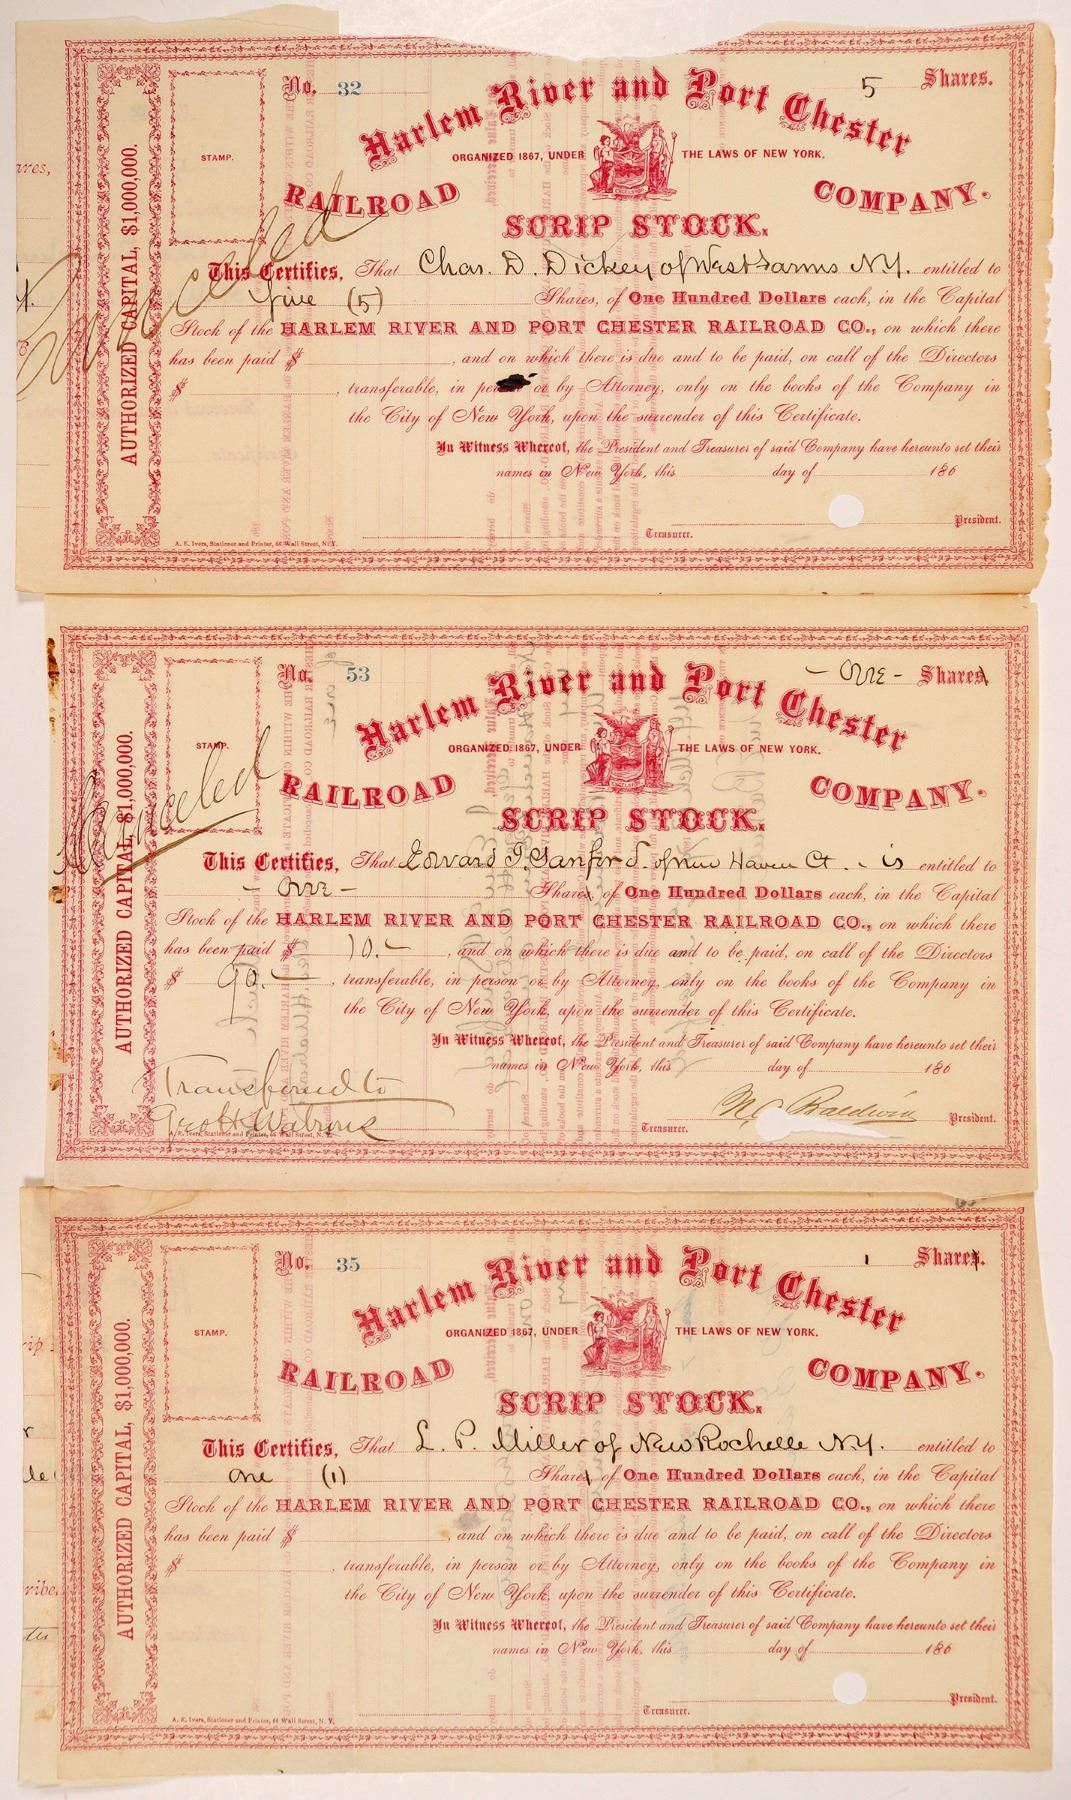 No. 32 5 Shares.
Harlem River and Port Chester
STAMP.
ORGANIZED 1867, UNDER THE LAWS OF NEW YORK.
EXCELSIOR
RAILROAD COMPANY.
SCRIP STOCK.
Canceled
AUTHORIZED CAPITAL, $1,000,000.
This Certifies, That Chas. D. Dickey of West Farms N.Y. entitled to
five (5) Shares, of One Hundred Dollars each, in the Capital
Stock of the HARLEM RIVER AND PORT CHESTER RAILROAD CO., on which there
has been paid $ , and on which there is due and to be paid, on call of the Directors
$ , transferable, in person or by Attorney, only on the books of the Company in
the City of New York, upon the surrender of this Certificate.
In Witness Whereof, the President and Treasurer of said Company have hereunto set their
names in New York, this day of 186
President.
Treasurer.
A. E. Ivers, Stationer and Printer, 66 Wall Street, N.Y.
No. 53 - One - Shares
Harlem River and Port Chester
STAMP.
ORGANIZED 1867, UNDER THE LAWS OF NEW YORK.
EXCELSIOR
RAILROAD COMPANY.
SCRIP STOCK.
Canceled
AUTHORIZED CAPITAL, $1,000,000.
This Certifies, That Edward T. Sanford of New Haven Ct. - is entitled to
- One - Share of One Hundred Dollars each, in the Capital
Stock of the HARLEM RIVER AND PORT CHESTER RAILROAD CO., on which there
has been paid $ 10.- , and on which there is due and to be paid, on call of the Directors
$ 90.- , transferable, in person or by Attorney, only on the books of the Company in
the City of New York, upon the surrender of this Certificate.
In Witness Whereof, the President and Treasurer of said Company have hereunto set their
names in New York, this day of 186
Transferred to
Geo H Watrous
Baldwin President.
Treasurer.
A. E. Ivers, Stationer and Printer, 66 Wall Street, N.Y.
No. 35 1 Shares.
Harlem River and Port Chester
STAMP.
ORGANIZED 1867, UNDER THE LAWS OF NEW YORK.
EXCELSIOR
RAILROAD COMPANY.
SCRIP STOCK.
AUTHORIZED CAPITAL, $1,000,000.
This Certifies, That L. P. Miller of New Rochelle N.Y. entitled to
One (1) Share of One Hundred Dollars each, in the Capital
Stock of the HARLEM RIVER AND PORT CHESTER RAILROAD CO., on which there
has been paid $ , and on which there is due and to be paid, on call of the Directors
$ , transferable, in person or by Attorney, only on the books of the Company in
the City of New York, upon the surrender of this Certificate.
In Witness Whereof, the President and Treasurer of said Company have hereunto set their
names in New York, this day of 186
President.
Treasurer.
A. E. Ivers, Stationer and Printer, 66 Wall Street, N.Y.